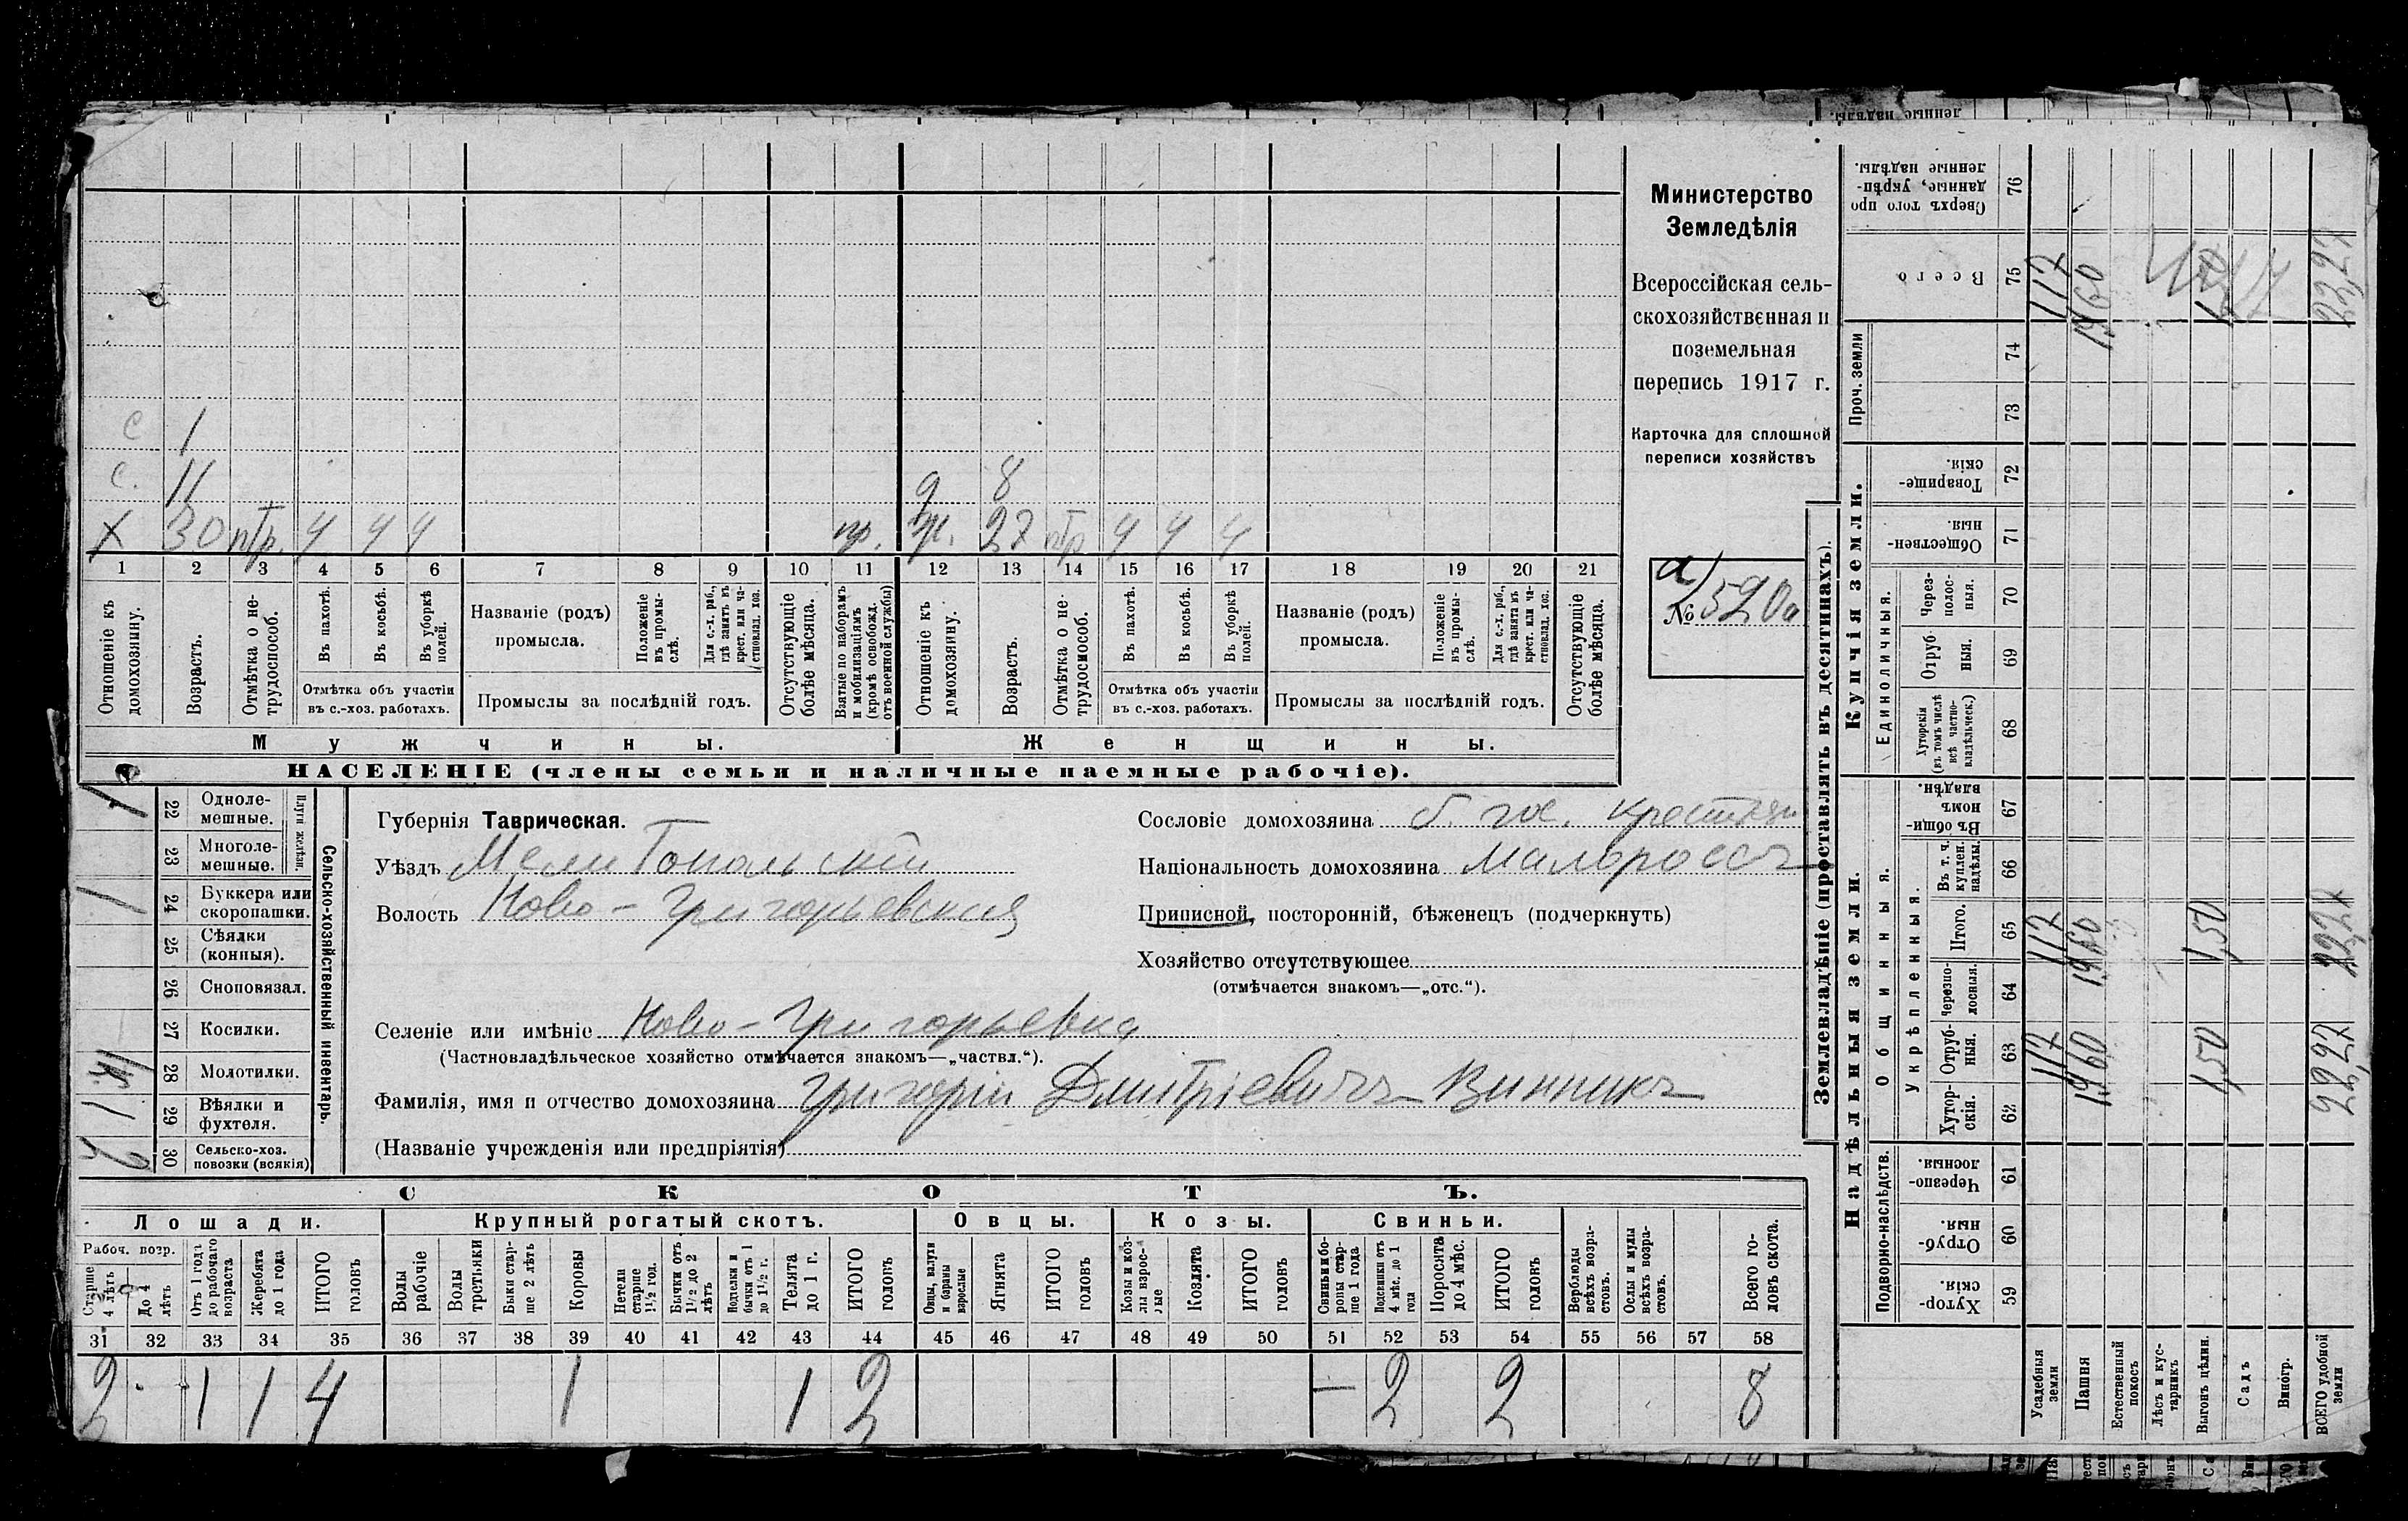 Министерство
Земледѣлія
Всероссійская сель-
скохозяйственная и
поземельная
перепись 1917 г.
Карточка для сплошной
переписи хозяйствъ
№ 520а
с 1
с. 11
д 8
х 30 птр. ч ч ч пр. ж. 27 птр ч ч ч
1 2 3 4 5 6 7 8 9 10 11 12 13 14 15 16 17 18 19 20 21
Отношеніе къ домохозяину.
Возрастъ.
Отмѣтка о не-трудоспособ.
Въ пахотѣ.
Въ косьбѣ.
Въ уборкѣ полей.
Отмѣтка объ участіи
въ с.-хоз. работахъ.
Названіе (родъ)
промысла.
Положеніе въ промы-слѣ.
Для с.-х. раб., гдѣ занятъ въ крест. или ча-стновлад. хоз.
Промыслы за послѣдній годъ.
Отсутствующіе болѣе мѣсяца.
Взятые по наборамъ и мобилизаціямъ (кромѣ освобожд. отъ военной службы)
Отношеніе къ домохозяину.
Возрастъ.
Отмѣтка о не-трудоспособ.
Въ пахотѣ.
Въ косьбѣ.
Въ уборкѣ полей.
Отмѣтка объ участіи
въ с.-хоз. работахъ.
Названіе (родъ)
промысла.
Положеніе въ промы-слѣ.
Для с.-х. раб., гдѣ занята въ крест. или ча-стновлад. хоз.
Промыслы за послѣдній годъ.
Отсутствующіе болѣе мѣсяца.
Мужчины. Женщины.
НАСЕЛЕНІЕ (члены семьи и наличные наемные рабочіе).
Сельско-хозяйственный инвентарь.
Плуги желѣзн.
1 22 Однолемешные.
23 Многолемешные.
1 24 Буккера или скоропашки.
25 Сѣялки (конныя).
26 Сноповязал.
27 Косилки.
28 Молотилки.
1 29 Вѣялки и фухтеля.
2 30 Сельско-хоз. повозки (всякія)
Губернія Таврическая.
Уѣздъ Мелитопольскій
Волость Ново-Григорьевская
Сословіе домохозяина б. гос. крестьян
Національность домохозяина малороссъ
Приписной, посторонній, бѣженец (подчеркнуть)
Хозяйство отсутствующее
(отмѣчается знакомъ—„отс.“).
Селеніе или имѣніе Ново-Григорьевка
(Частновладѣльческое хозяйство отмѣчается знакомъ—„частвл.“).
Фамилія, имя и отчество домохозяина Григорій Дмитріевичъ Винникъ
(Названіе учрежденія или предпріятія)
СКОТЪ.
Лошади. Крупный рогатый скотъ. Овцы. Козы. Свиньи.
Рабоч. возр.
Старше 4 лѣтъ
До 4 лѣтъ
Отъ 1 года до рабочаго возраста
Жеребята до 1 года
ИТОГО головъ
Волы рабочіе
Волы третьяки
Быки стар-ше 2 лѣтъ
Коровы
Нетели старше 1½ год.
Бычки отъ 1½ до 2 лѣтъ
Подтелки и бычки отъ 1 до 1½ г.
Телята до 1 г.
ИТОГО головъ
Овцы, валухи и бараны взрослые
Ягнята
ИТОГО головъ
Козы и коз-лы взрос-лые
Козлята
ИТОГО головъ
Свиньи и бо-ровы стар-ше 1 года
Подсвинки отъ 4 мѣс. до 1 года
Поросята до 4 мѣс.
ИТОГО головъ
Верблюды всѣхъ возра-стовъ.
Ослы и мулы всѣхъ возра-стовъ.
Всего го-ловъ скота.
31 32 33 34 35 36 37 38 39 40 41 42 43 44 45 46 47 48 49 50 51 52 53 54 55 56 57 58
2 - 1 1 4 1 1 2 — 2 2 8
Землевладѣніе (проставлять въ десятинахъ).
Надѣльныя земли. Купчія земли. Проч. земли
Подворно-наслѣдств. Общинныя. Единоличныя.
Укрѣпленныя.
Хутор-скія. 59
Отруб-ныя 60
Черезпо-лосныя. 61
Хутор-скія. 62
Отруб-ныя. 63
Черезпо-лосныя. 64
Итого. 65
Въ т. ч. куплен. надѣлы. 66
Въ общи-номъ владѣн. 67
Хуторскія (въ томъ числѣ всѣ частно-владѣльческ.) 68
Отруб-ныя. 69
Через-полос-ныя. 70
Обществен-ныя. 71
Товарище-скія. 72
73
74
Всего 75
Сверхъ того про данные, укрѣп-ленные надѣлы. 76
Усадебныя земли 1,17 1,17 1,17
Пашня 19,60 19,60 19,60
Естественный покосъ
Лѣсъ и кус-тарникъ
Выгонъ цѣлин. 1,50 1,50
Садъ
Виногр.
ВСЕГО удобной земли 22,27 22,27 22,27